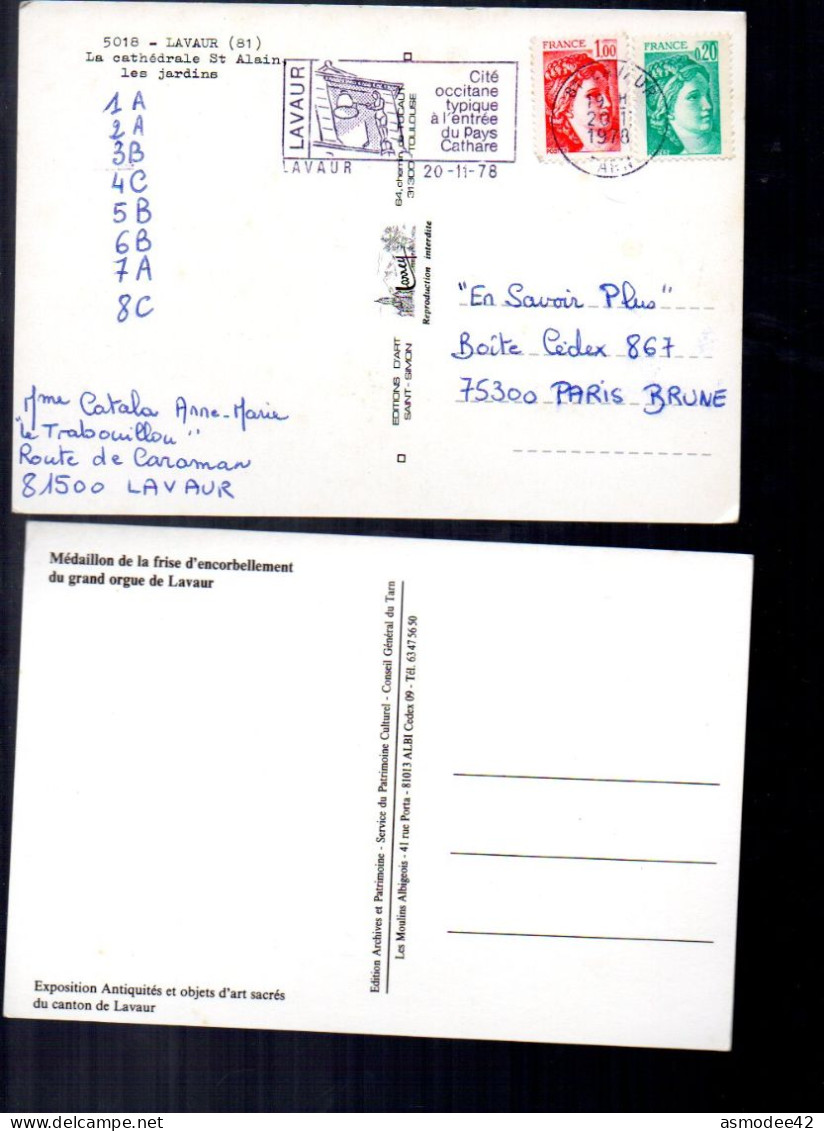 5018 - LAVAUR (81)
La cathédrale St Alain,
les jardins
1 A
2 A
3 B
4 C
5 B
6 B
7 A
8 C
LAVAUR
Cité
occitane
typique
à l'entrée
du Pays
Cathare
LAVAUR
20-11-78
FRANCE
1,00
FRANCE
0,20
19 H
1978
TARN
31300 TOULOUSE
Reproduction interdite
EDITIONS D'ART
SAINT-SIMON
"En Savoir Plus"
Boîte Cédex 867
75300 PARIS BRUNE
Mme Catala Anne-Marie
"Le Trabouillou"
Route de Caraman
81500 LAVAUR
Médaillon de la frise d'encorbellement
du grand orgue de Lavaur
Edition Archives et Patrimoine - Service du Patrimoine Culturel - Conseil Général du Tarn
Les Moulins Albigeois - 41 rue Porta - 81013 ALBI Cedex 09 - Tél. 63 47 56 50
Exposition Antiquités et objets d'art sacrés
du canton de Lavaur
asmodee42